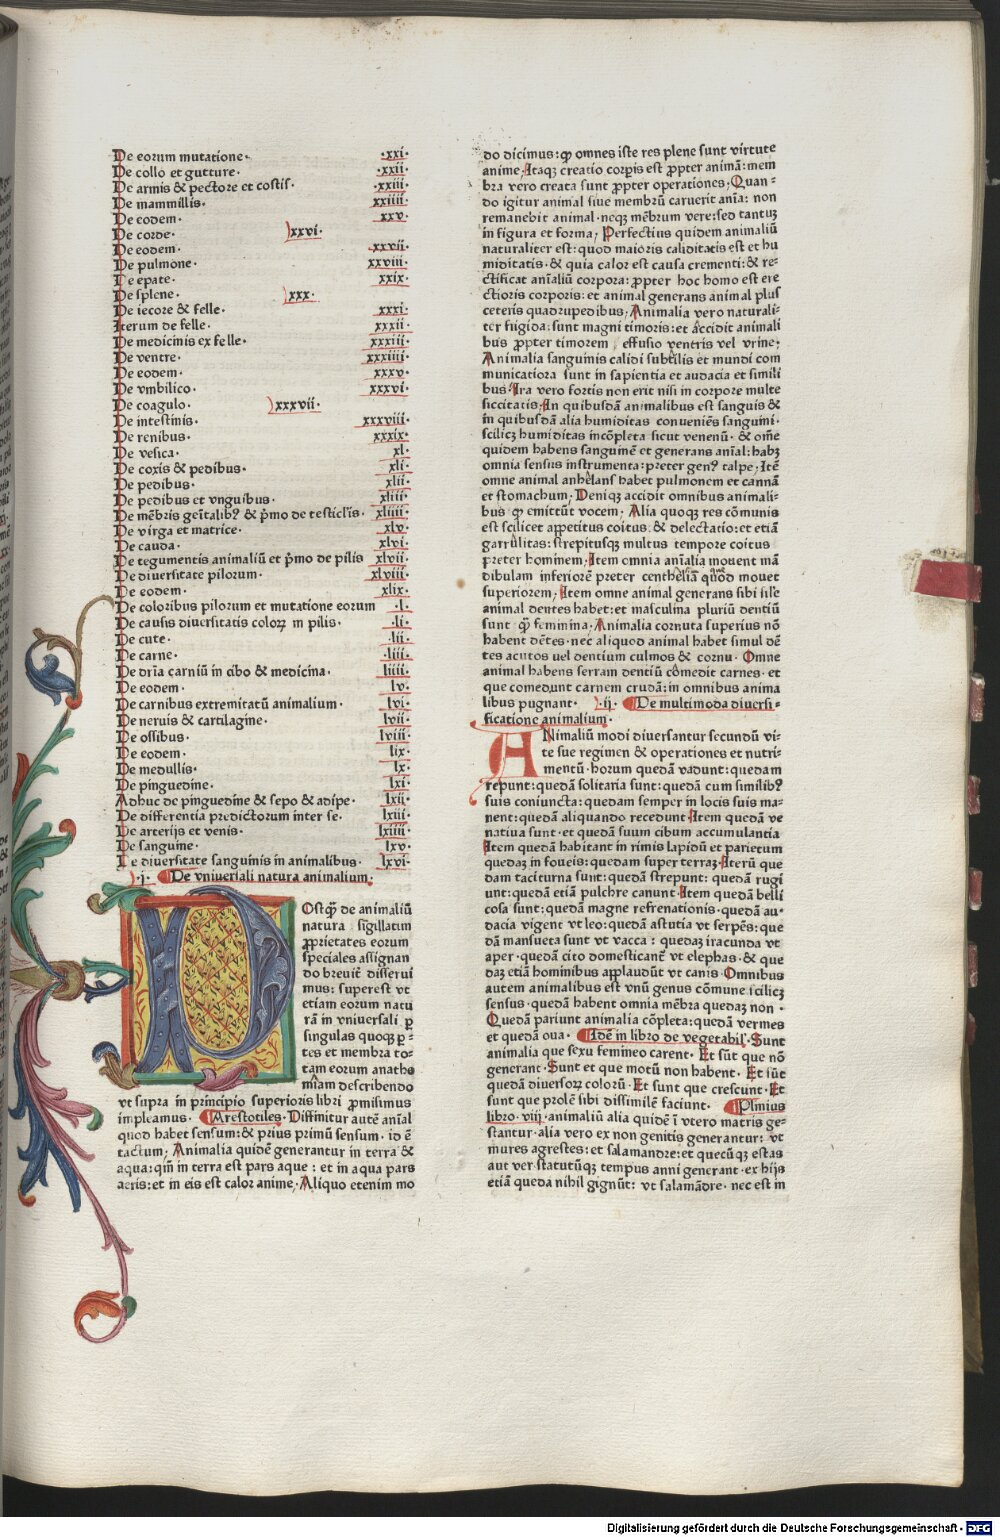 De eorum mutatione· ·xxi·
De collo et gutture· ·xxii·
De armis & pectore et costis· ·xxiii·
De mammillis· xxiiii·
De eodem· xxv·
De corde· xxvi·
De eodem· xxvii·
De pulmone· xxviii·
De epate· xxix·
De splene· xxx·
De iecore & felle· xxxi·
Iterum de felle· xxxii·
De medicinis ex felle· xxxiii·
De ventre· xxxiiii·
De eodem· xxxv·
De vmbilico· xxxvi·
De coagulo· xxxvii·
De intestinis· xxxviii·
De renibus· xxxix·
De vesica· xl·
De coxis & pedibus· xli·
De pedibus· xlii·
De pedibus et vnguibus· xliii·
De mēbris geītalibꝰ & p̄mo de testicl'is· xliiii·
De virga et matrice· xlv·
De cauda· xlvi·
De tegumentis animaliū et p̄mo de pilis xlvii·
De diuersitate pilorum· xlviii·
De eodem· xlix·
De coloribus pilorum et mutatione eorum ·l·
De causis diuersitatis coloꝝ in pilis· ·li·
De cute· ·lii·
De carne· ·liii·
De dr̄ia carniū in cibo & medicina· liiii·
De eodem· lv·
De carnibus extremitatū animalium· lvi·
De neruis & cartilagine· lvii·
De ossibus· lviii·
De eodem· lix·
De medullis· lx·
De pinguedine· lxi·
Adhuc de pinguedine & sepo & adipe· lxii·
De differentia predictorum inter se· lxiii·
De arterijs et venis· lxiiii·
De sanguine· lxv·
De diuersitate sanguinis in animalibus· lxvi·
·i· De vniuersali natura animalium·
POstq̄ de animaliū
natura sigillatim
ꝓprietates eorum
speciales assignan
do breuit̄ disserui
mus: superest vt
etiam eorum natu
rā in vniuersali ꝑ
singulas quoqꝫ ꝑ-
tes et membra to-
tam eorum anatho
miam describendo
vt supra in principio superioris libri ꝓmisimus
impleamus· Arestotiles· Diffinitur autē anīal
quod habet sensum: & prius primū sensum· id ē
tactum; Animalia quidē generantur in terra &
aqua: qm̄ in terra est pars aque: et in aqua pars
aeris: et in eis est calor anime; Aliquo etenim mo
do dicimus: ꝙ omnes iste res plene sunt virtute
anime; Itaqꝫ creatio corꝑis est ꝓpter animā: mem
bra vero creata sunt ꝓpter operationes; Quan-
do igitur animal siue membrū caruerit aīa: non
remanebit animal· neqꝫ mēbrum vere: sed tantuꝫ
in figura et forma; Perfectius quidem animaliū
naturaliter est: quod maioris caliditatis est et hu
miditatis· & quia calor est causa crementi: & re-
ctificat anīaliū corpora: ꝓpter hoc homo est ere
ctioris corporis: et animal generans animal plus
ceteris quadrupedibus; Animalia vero naturali-
ter frigida: sunt magni timoris: et accidit animali
bus ꝓpter timorem effusio ventris vel vrine;
Animalia sanguinis calidi subtilis et mundi com
municatiora sunt in sapientia et audacia et simili
bus· Ira vero fortis non erit nisi in corpore multe
siccitatis; In quibusdā animalibus est sanguis &
in quibusdā alia humiditas conueniēs sanguini·
scilicꝫ humiditas incōpleta sicut venenū· & om̄e
quidem habens sanguinē et generans anīal: habꝫ
omnia sensus instrumenta: preter genꝰ talpe; Itē
omne animal anhelans habet pulmonem et cannā
et stomachum; Deniqꝫ accidit omnibus animali-
bus ꝙ emittūt vocem; Alia quoqꝫ res cōmunis
est scilicet appetitus coitus: & delectatio: et etiā
garrulitas: strepitusqꝫ multus tempore coitus
preter hominem; Item omnia anīalia mouent mā
dibulam inferiorē preter quod mouet
superiorem; Item omne animal generans sibi sil'e
animal dentes habet: et masculina pluriū dentiū
sunt q̄ feminina; Animalia cornuta superius nō
habent dētes· nec aliquod animal habet simul dē
tes acutos uel dentium culmos & cornu· Omne
animal habens serram dentiū cōmedit carnes· et
que comedunt carnem crudā: in omnibus anima
libus pugnant· ·ij· De multimoda diuersi-
ficatione animalium·
ANimaliū modi diuersantur secundū vi-
te sue regimen & operationes et nutri-
mentū· horum quedā vadunt: quedam
repunt: quedā solitaria sunt: quedā cum similibꝰ
suis coniuncta: quedam semper in locis suis ma-
nent: quedā aliquando recedunt· Item quedā ve
natiua sunt· et quedā suum cibum accumulantia
Item quedā habitant in rimis lapidū et parietum
quedaꝫ in foueis: quedam super terraꝫ· Iterū que
dam taciturna sunt: quedā strepunt: quedā rugi
unt: quedā etiā pulchre canunt· Item quedā belli
cosa sunt: quedā magne refrenationis· quedā au-
dacia vigent vt leo: quedā astutia vt serpēs: que
dā mansueta sunt vt vacca: quedaꝫ iracunda vt
aper· quedā cito domesticant̄ vt elephas· & que
daꝫ etiā hominibus applaudūt vt canis· Omnibus
autem animalibus est vnū genus cōmune scilicꝫ
sensus· quedā habent omnia mēbra quedaꝫ non·
Quedā pariunt animalia cōpleta: quedā vermes
et quedā oua· Idē in libro de vegetabil'· Sunt
animalia que sexu femineo carent· Et sūt que nō
generant· Sunt et que motū non habent· Et sūt
quedā diuersoꝝ colorū· Et sunt que crescunt· Et
sunt que prolē sibi dissimilē faciunt· Plinius
libro· viij· animaliū alia quidē ī vtero matris ge-
stantur· alia vero ex non genitis generantur: vt
mures agrestes: et salamandre: et quecūqꝫ estas
aut ver statutūqꝫ tempus anni generant· ex hijs
etiā queda nihil gignūt: vt salamādre· nec est in
Digitalisierung gefördert durch die Deutsche Forschungsgemeinschaft - DFG